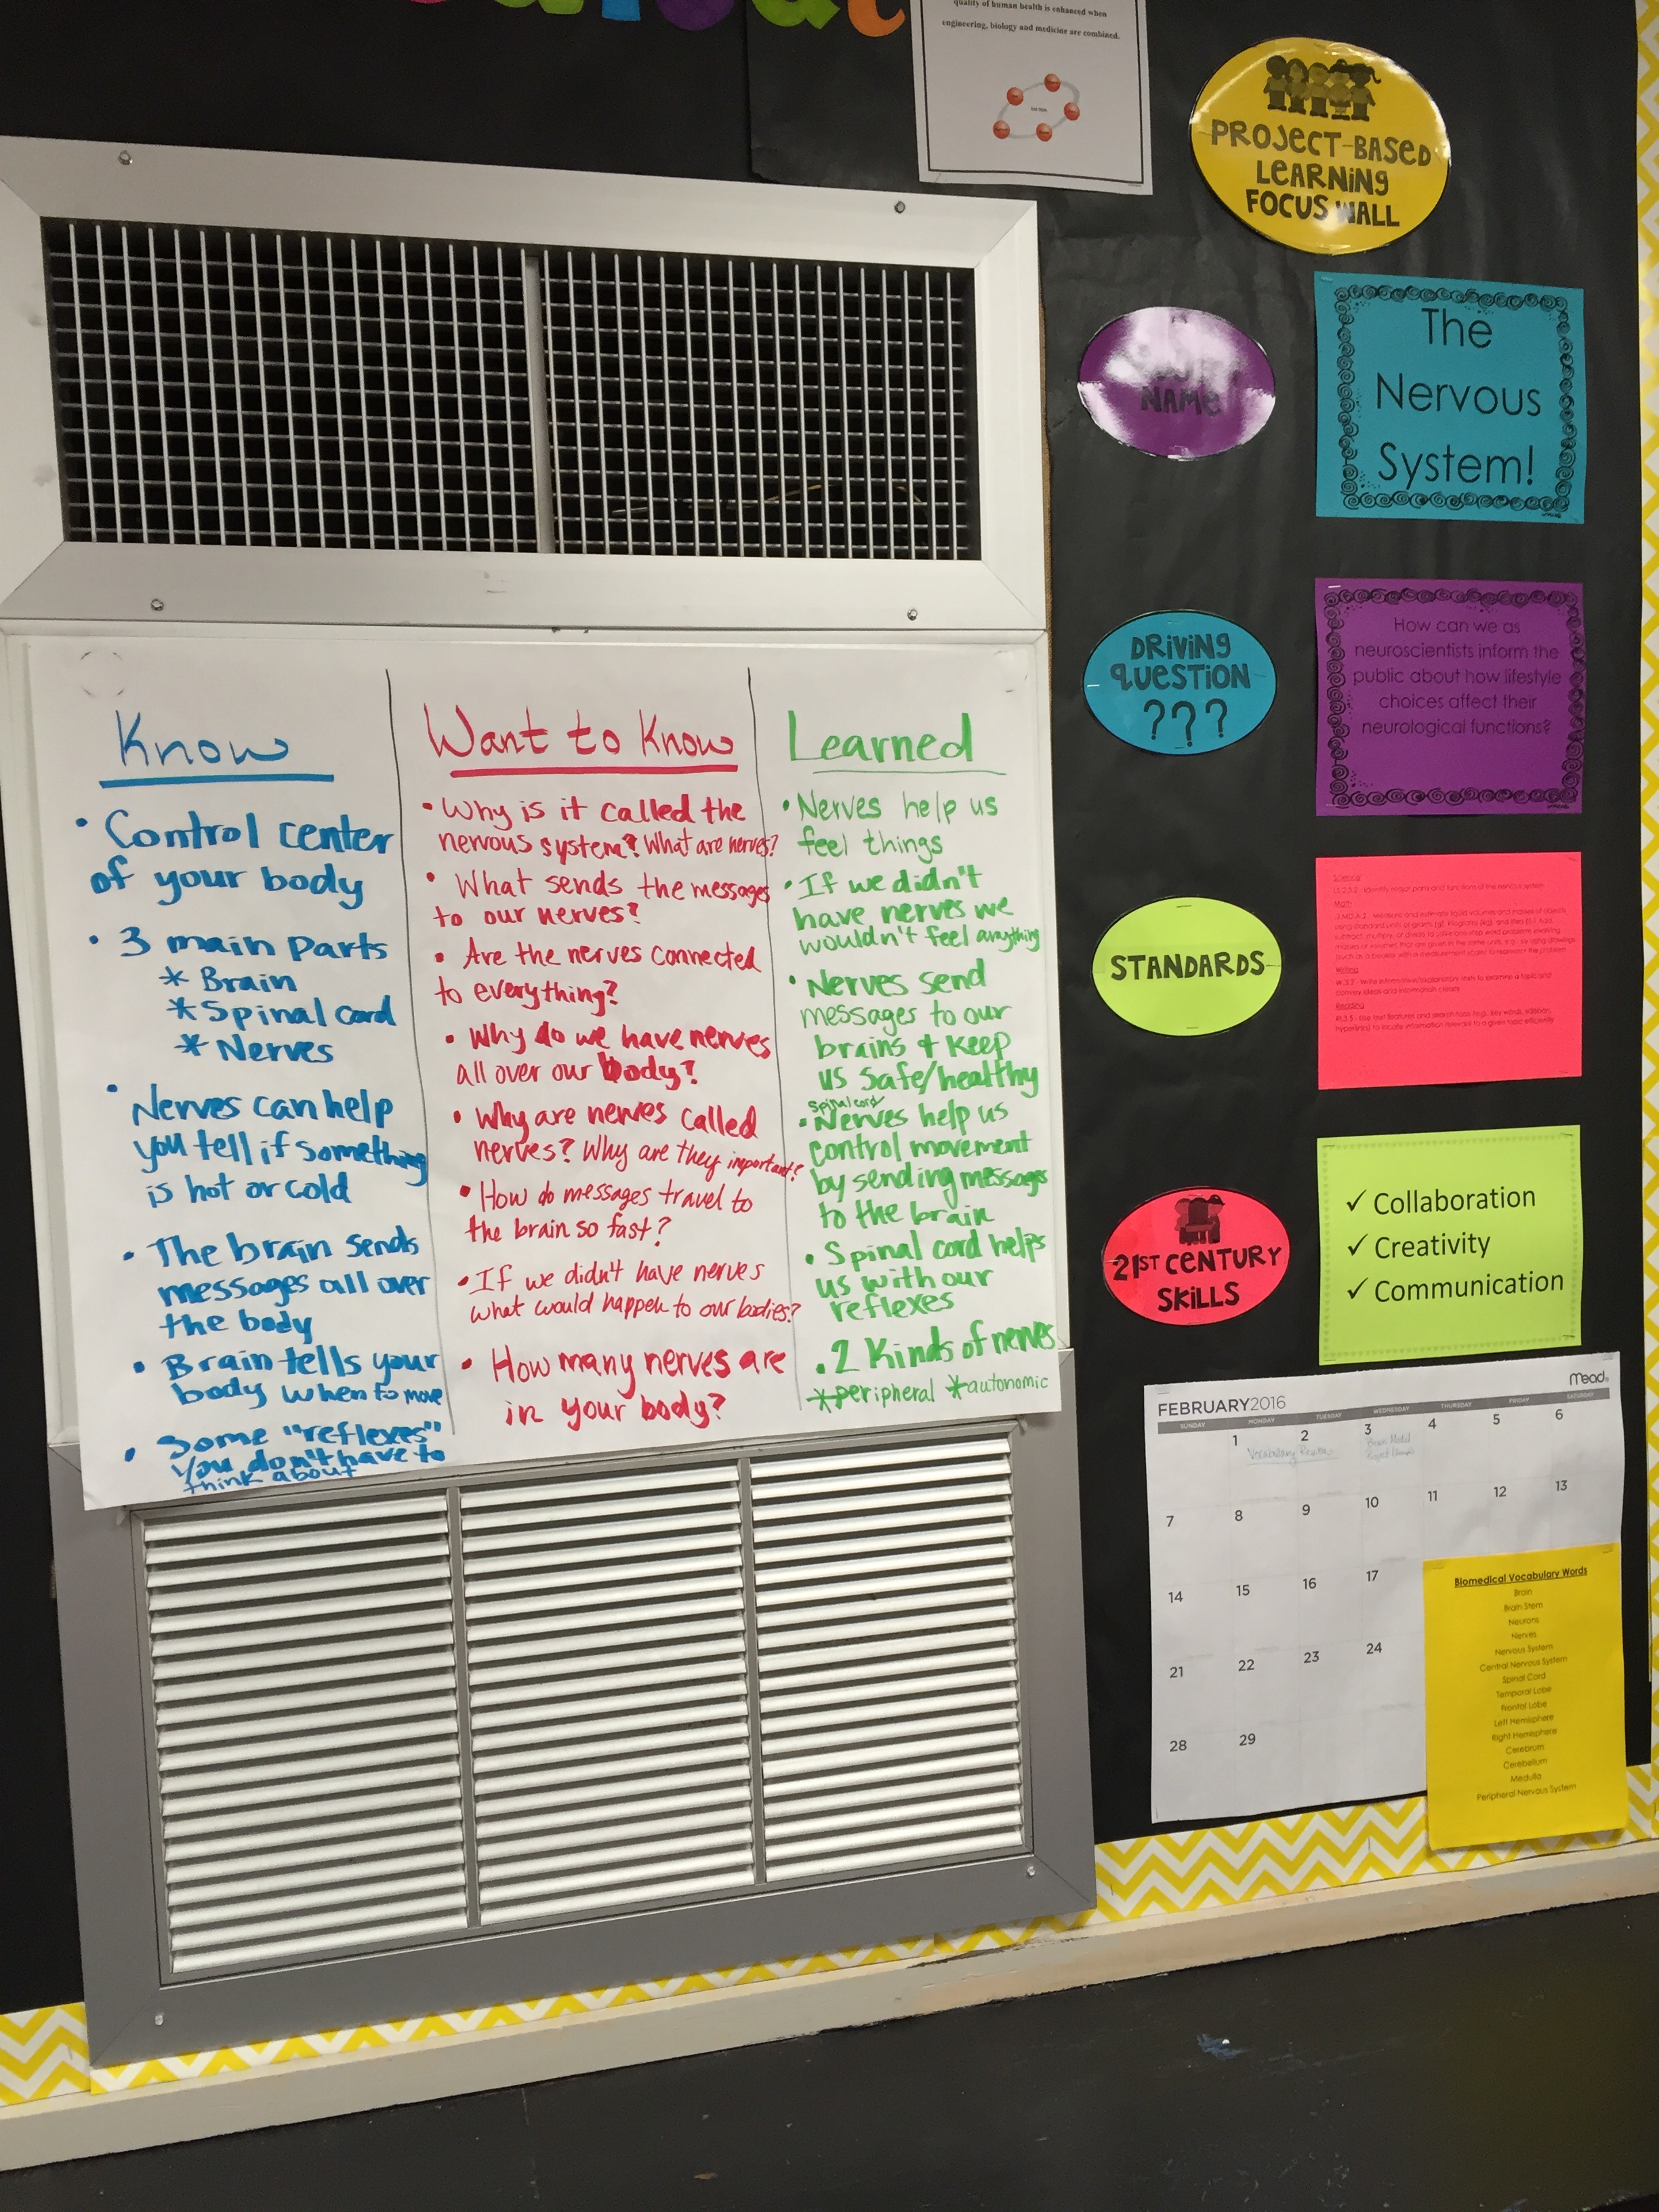 quality of human health is enhanced when
engineering, biology and medicine are combined.
PROJECT-BASED
LEARNING
FOCUS WALL
NAME
The
Nervous
System!
DRIVING
QUESTION
???
How can we as
neuroscientists inform the
public about how lifestyle
choices affect their
neurological functions?
STANDARDS
Science
Math
Writing
Reading
21ST CENTURY
SKILLS
✓ Collaboration
✓ Creativity
✓ Communication
Know
• Control center
of your body
• 3 main parts
* Brain
* Spinal cord
* Nerves
• Nerves can help
you tell if something
is hot or cold
• The brain sends
messages all over
the body
• Brain tells your
body when to move
• Some "reflexes"
you don't have to
think about
Want to Know
• Why is it called the
nervous system? What are nerves?
• What sends the messages
to our nerves?
• Are the nerves connected
to everything?
• Why do we have nerves
all over our body?
• Why are nerves called
nerves? Why are they important?
• How do messages travel to
the brain so fast?
• If we didn't have nerves
what would happen to our bodies?
• How many nerves are
in your body?
Learned
• Nerves help us
feel things
• If we didn't
have nerves we
wouldn't feel anything
• Nerves send
messages to our
brains + keep
us safe/healthy
spinal cord
• Nerves help us
control movement
by sending messages
to the brain
• Spinal cord helps
us with our
reflexes
• 2 Kinds of nerves
*peripheral *autonomic
Mead
FEBRUARY 2016
SUNDAY MONDAY TUESDAY WEDNESDAY THURSDAY FRIDAY SATURDAY
1 2 3 4 5 6
Vocabulary Review
7 8 9 10 11 12 13
14 15 16 17
21 22 23 24
28 29
Biomedical Vocabulary Words
Brain
Brain Stem
Neurons
Nerves
Nervous System
Central Nervous System
Spinal Cord
Temporal Lobe
Frontal Lobe
Left Hemisphere
Right Hemisphere
Cerebrum
Cerebellum
Medulla
Peripheral Nervous System